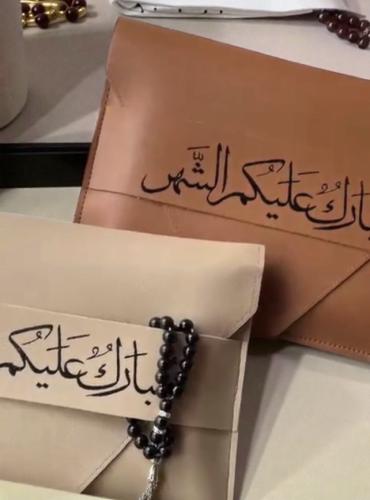 مبارك عليكم الشَّهر
مبارك عليكم